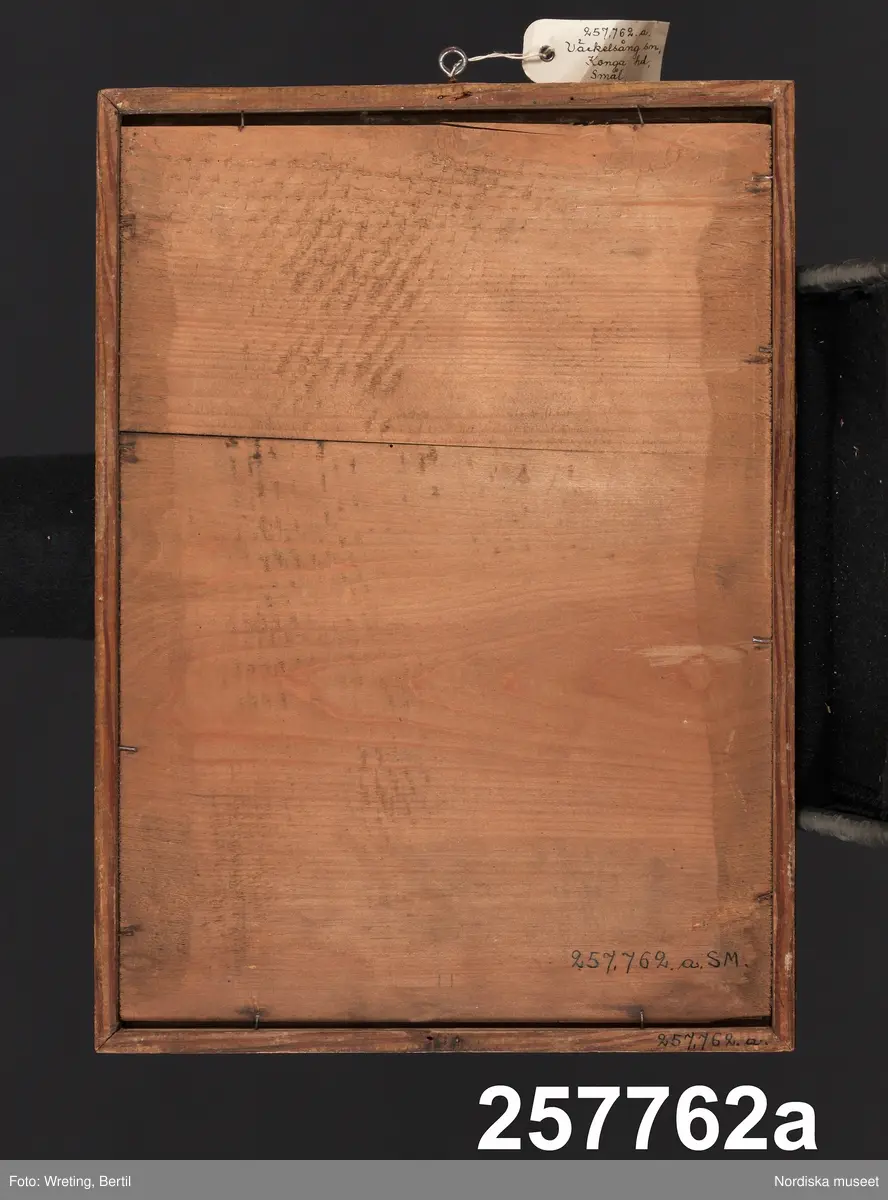 257,762.a.
Väckelsång sn,
Konga hd,
Smål
257,762.a.SM.
257,762.a.
257762a
Foto: Wreting, Bertil
Nordiska museet